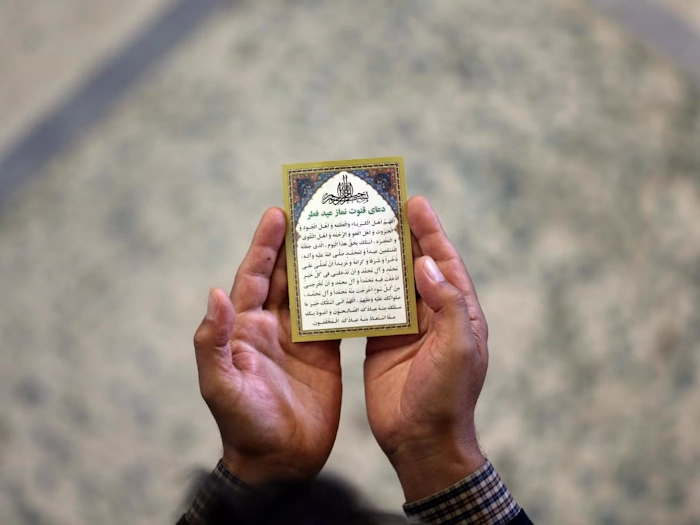 بسم الله الرحمن الرحیم
دعای قنوت نماز عید فطر
اَللّهُمَّ اَهْلَ الْکِبْرِیاءِ وَ الْعَظَمَةِ وَ اَهْلَ الْجُودِ وَ
الْجَبَرُوتِ وَ اَهْلَ الْعَفْوِ وَ الرَّحْمَةِ وَ اَهْلَ التَّقْوی
وَ الْمَغْفِرَةِ ، اَسْئَلُکَ بِحَقِّ هذَا الْیَوْمِ ، الَّذی جَعَلْتَهُ
لِلْمُسْلِمینَ عیداً وَ لِمُحَمَّدٍ صَلَّی اللهُ عَلَیْهِ وَ آلِهِ ،
ذُخْراً وَ شَرَفاً وَ کَرامَةً وَ مَزیداً اَنْ تُصَلِّیَ عَلی
مُحَمَّدٍ وَ آلِ مُحَمَّدٍ وَ اَنْ تُدْخِلَنی فی کُلِّ خَیْرٍ
اَدْخَلْتَ فیهِ مُحَمَّداً وَ آلَ مُحَمَّدٍ وَ اَنْ تُخْرِجَنی
مِنْ کُلِّ سُوءٍ اَخْرَجْتَ مِنْهُ مُحَمَّداً وَ آلَ مُحَمَّدٍ ،
صَلَواتُکَ عَلَیْهِ وَ عَلَیْهِمْ ، اَللّهُمَّ اِنّی اَسْئَلُکَ خَیْرَ ما
سَئَلَکَ مِنْهُ عِبادُکَ الصّالِحُونَ وَ اَعُوذُ بِکَ
مِمَّا اسْتَعاذَ مِنْهُ عِبادُکَ الْمُخْلَصُونَ.